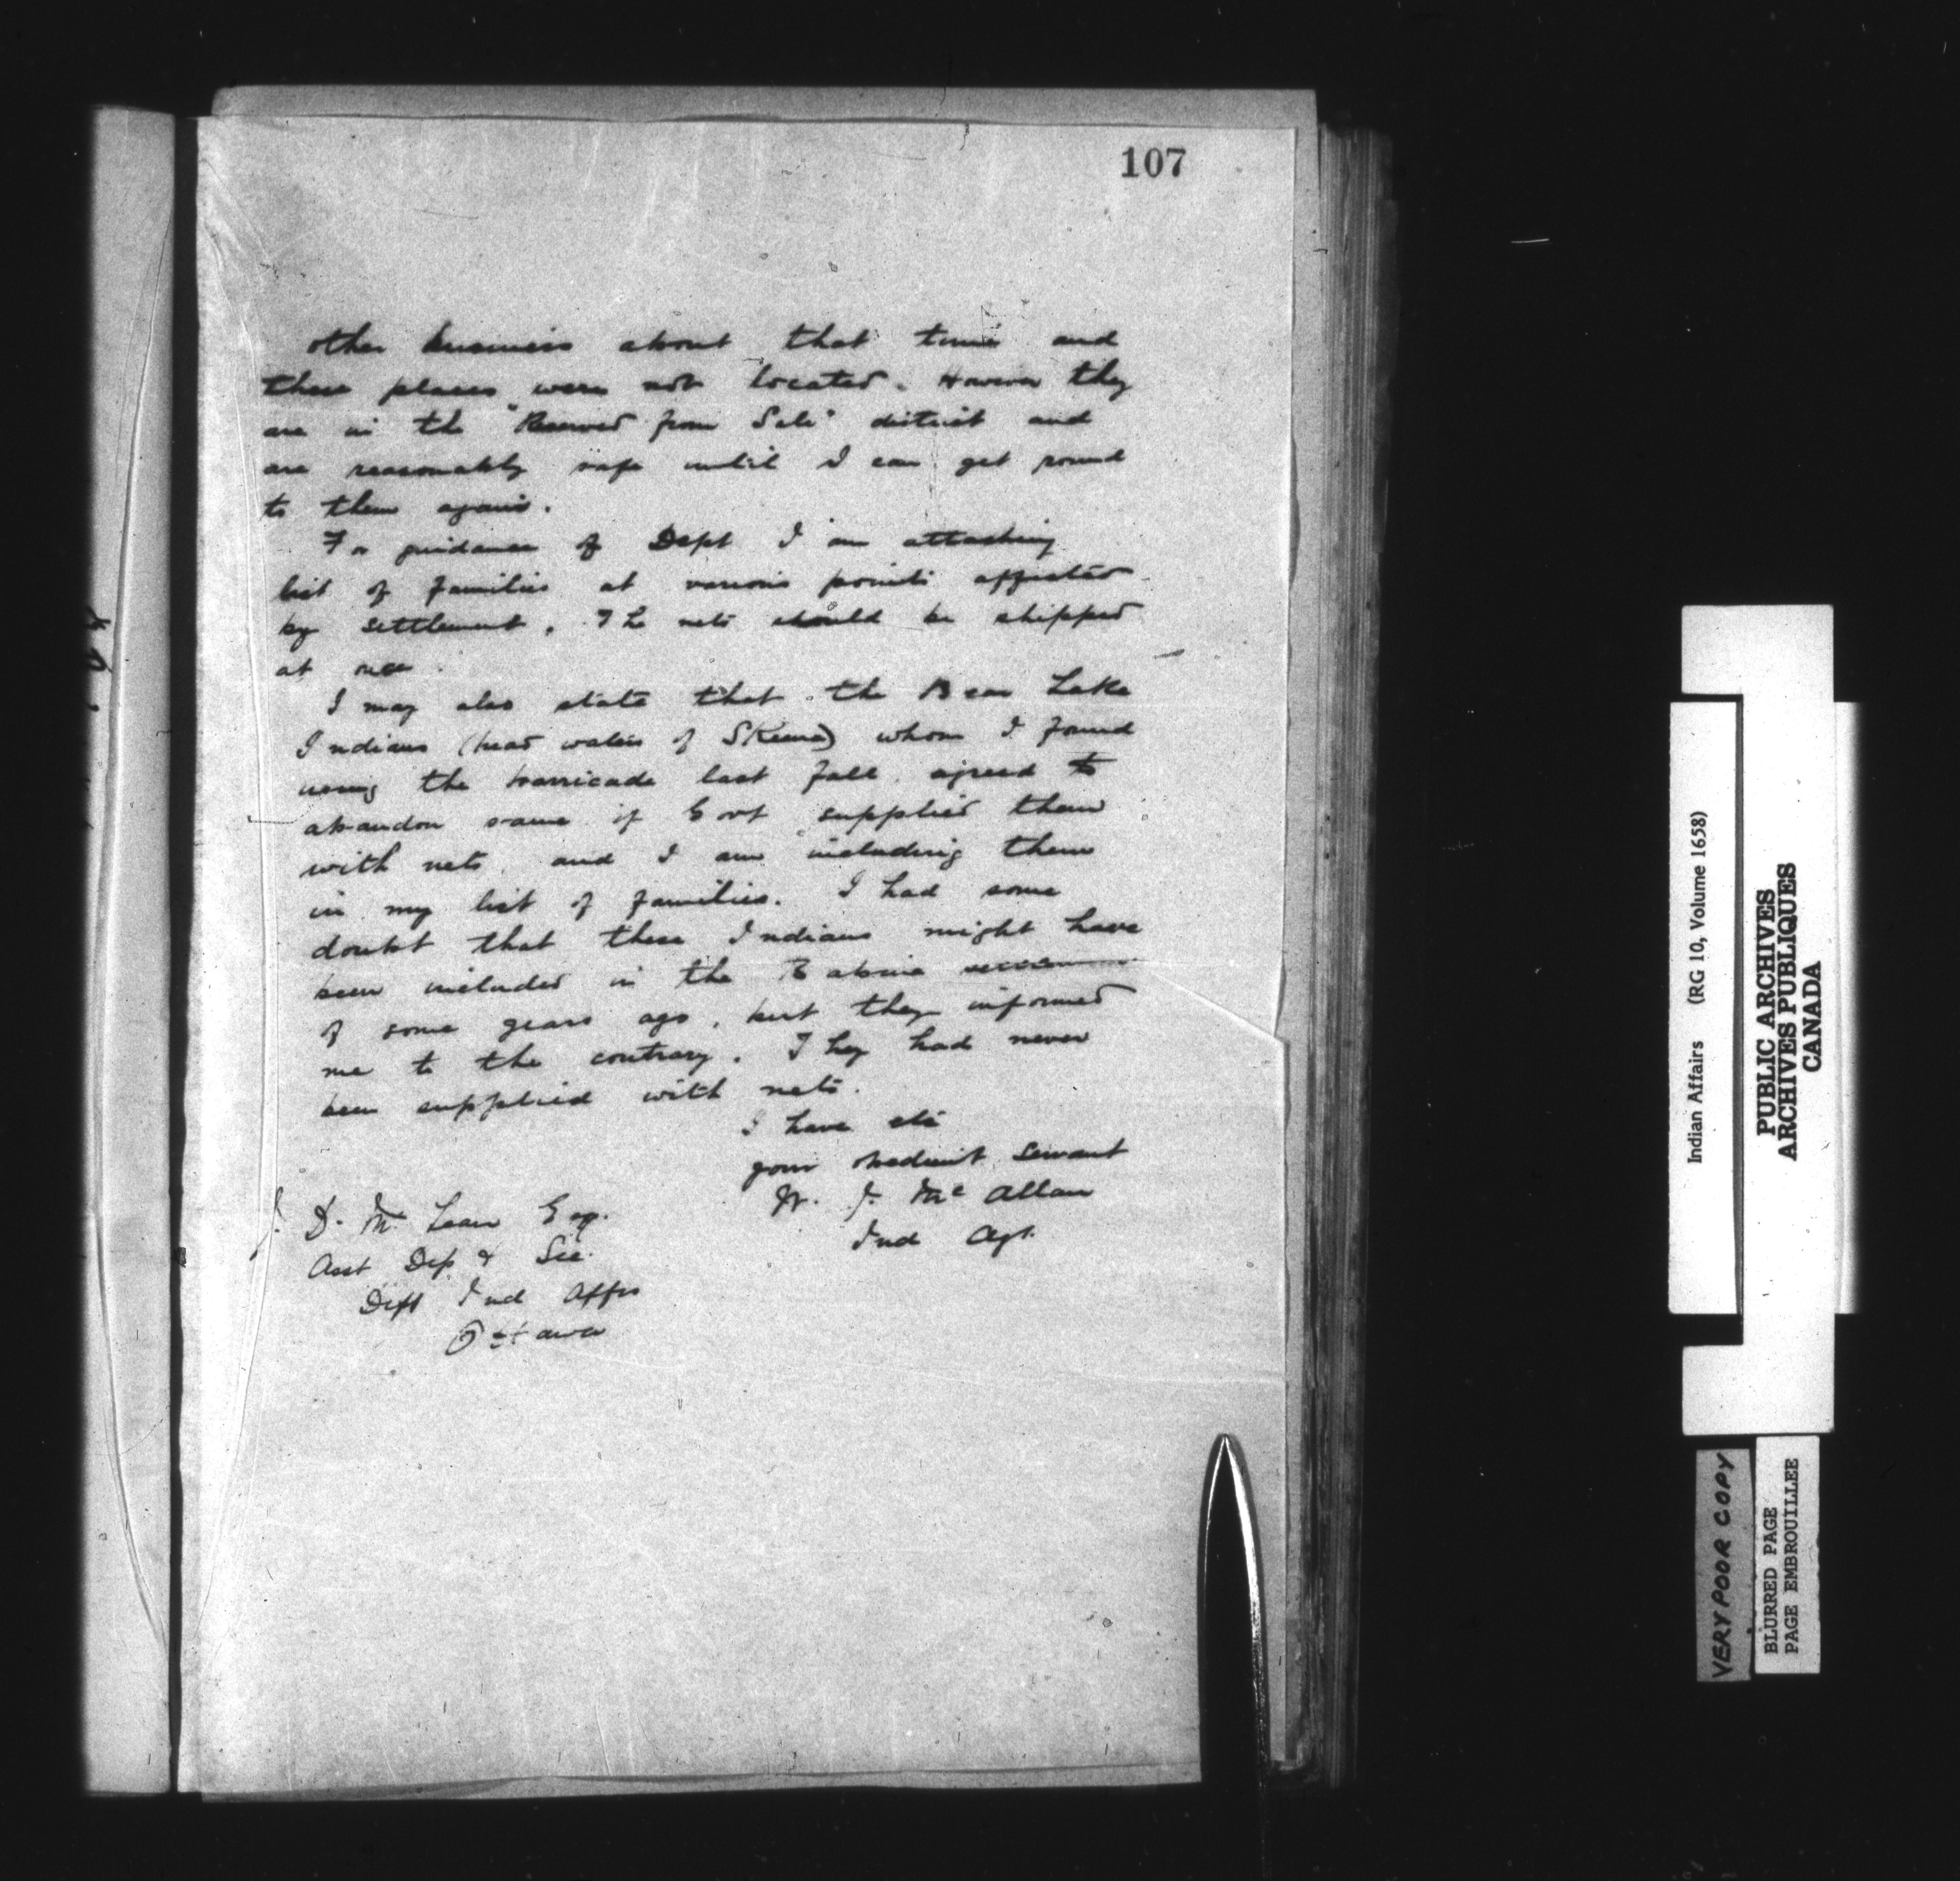 107
other business about that time and
these places were not located. However they
are in the "Reserved from Sale" district and
are reasonably safe until I can get round
to them again.
For guidance of Dept I am attaching
list of families at various points affected
by settlement. The nets should be shipped
at once.
I may also state that the Bear Lake
Indians (head waters of Skeena) whom I found
using the barricade last fall, agreed to
abandon same if Govt supplied them
with nets, and I am including them
in my list of families. I had some
doubt that these Indians might have
been included in the Babine
of some years ago, but they informed
me to the contrary. They had never
been supplied with nets.
I have etc
your obedient servant
W. J. McAllan
Ind Agt.
J. D. McLean Esq.
Asst Dep & Sec.
Dept Ind Affrs
Ottawa
Indian Affairs (RG 10, Volume 1658)
PUBLIC ARCHIVES
ARCHIVES PUBLIQUES
CANADA
VERY POOR COPY
BLURRED PAGE
PAGE EMBROUILLEE